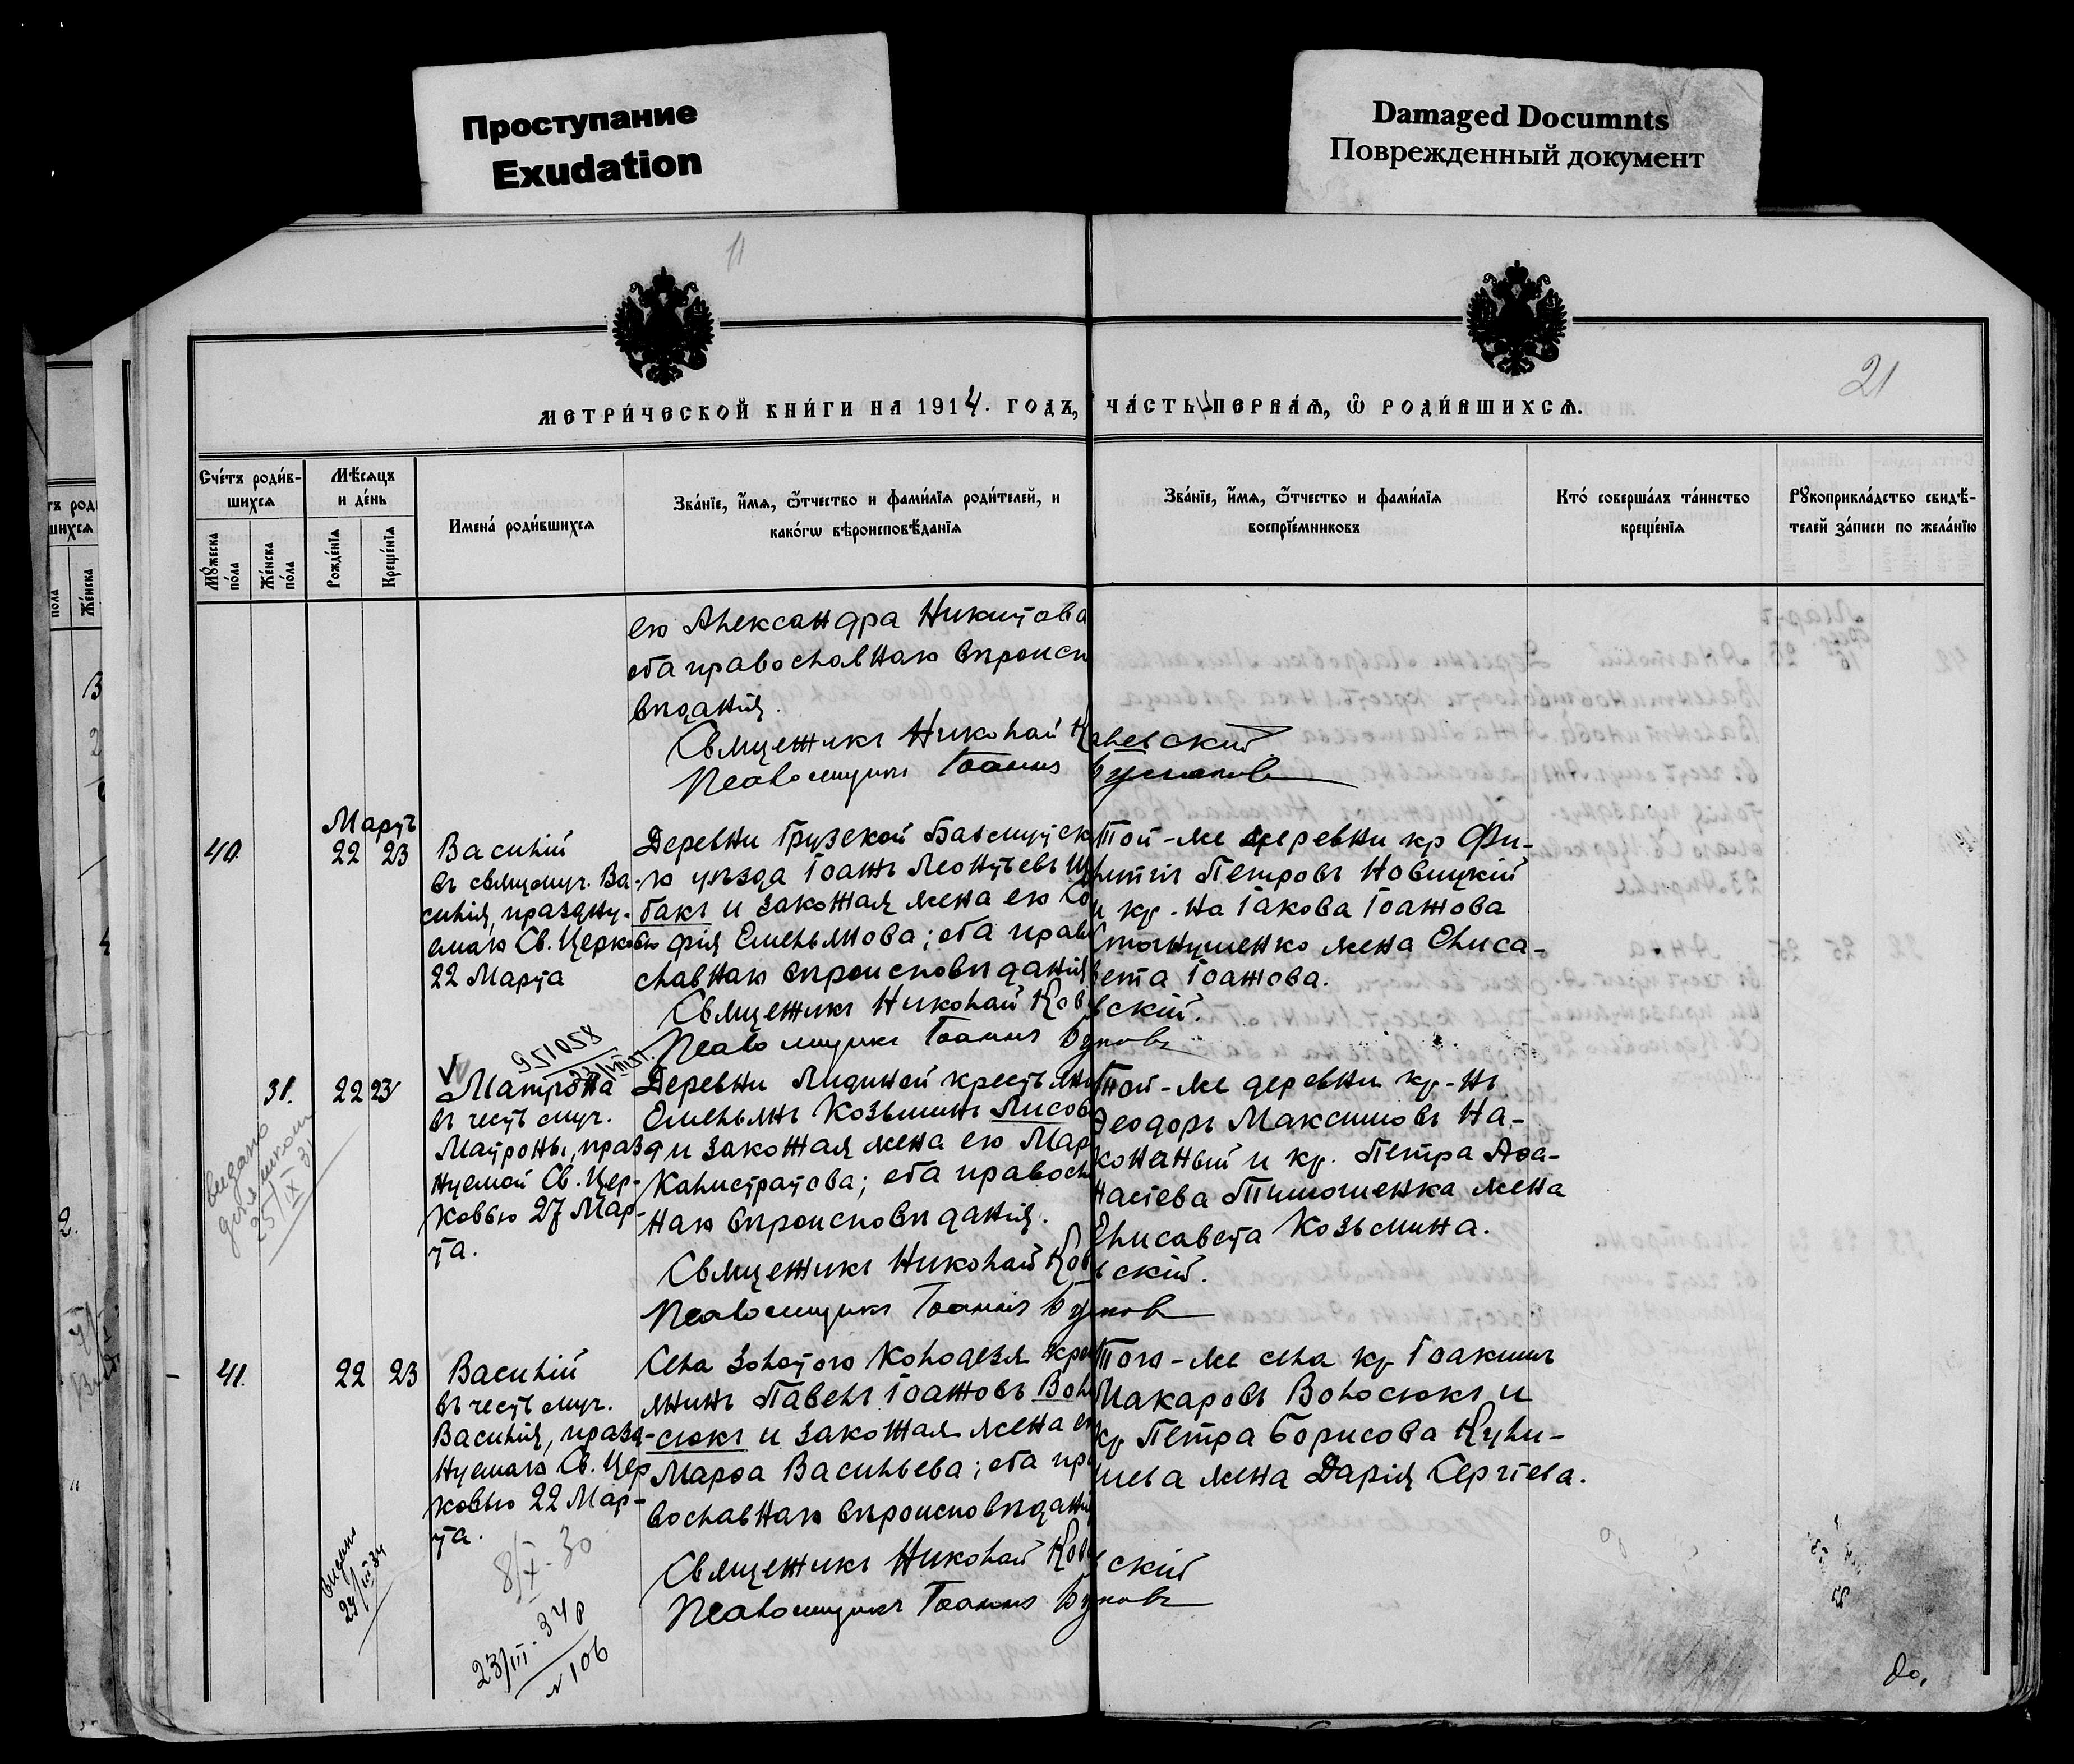 Проступание
Exudation
Damaged Documnts
Поврежденный документ
11
21
МЕТРИ́ЧЕСКОЙ КНИ́ГИ НА 1914. ГОДЪ, ЧА́СТЬ ПЕРВАЯ, Ѿ РОДИ́ВШИХСЯ.
Сче́тъ роди́в-
шихся
Му́жеска по́ла
Же́нска по́ла
Мѣ́сяцъ
и де́нь
Рожде́нїя
Креще́нїя
Имена́ роди́вшихся
Зва́нїе, и́мя, ѻ́тчество и фами́лїя роди́телей, и
како́гѡ вѣроисповѣ́данїя
Зва́нїе, и́мя, ѻ́тчество и фами́лїя
воспрїе́мниковъ
Кто́ соверша́лъ та́инство
креще́нїя
Рꙋкоприкла́дство свидѣ́-
телей за́писи по жела́нїю
его Александра Никитова
оба православнаго вѣроиспо
вѣданія.
Священникъ Николай
Псаломщикъ Іоаннъ
40.
Мартъ
22 23
Василій
въ священомуч. Ва-
силія, праздну-
емаго Св. Церко
22 Марта
Деревни Грузской Бахмутск
го уѣзда Іоаннъ Леонтьевъ
бакъ и законная жена его Со
фія Емельянова; оба право
славнаго вѣроисповѣданія
Священникъ Николай Ков
вскій.
Псаломщикъ Іоаннъ
Той-же деревни кр Фи-
липпъ Петровъ Новицкій
и кр-на Іакова Іоаннова
жена Елиса-
вета Іоаннова.
951058
31.
22 23
Матрона
въ честь муч.
Матроны, празд
нуемой Св. Цер-
ковью 27 Мар-
та.
Деревни крестьянинъ
Емельянъ Козьминъ Лисов
и законная жена его Мар
Калистратова; оба правосл
наго вѣроисповѣданія.
Священникъ Николай Ков
вскій.
Псаломщикъ Іоаннъ
Той-же деревни кр-нъ
Ѳеодоръ Максимовъ На-
конечный и кр. Петра Аѳа-
насіева Тимошенка жена
Елисавета Козьмина.
выдано
25/IX 31
41.
22 23
Василій
въ честь муч.
Василія, празд-
нуемаго Св. Цер
ковью 22 Мар-
та.
Села Золотого Колодезя кре
янинъ Павелъ Іоанновъ Воло
-сюкъ и законная жена ег
Марѳа Васильева; оба пра
вославнаго вѣроисповѣданія
Священникъ Николай Ков
вскій
Псаломщикъ Іоаннъ
Того-же села кр Іоакимъ
Макаровъ Волосюкъ и
кр Петра Борисова Кули-
жена Дарія Сергіева.
8/X-30
23/III-34р
№106
24/III 34